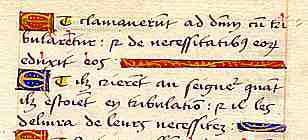 Et clamauerūt ad dn̄m cū tri
bularētur : ⁊ de necessitatibꝰ eorꝫ
eduxit eos
Et ilz crierēt au seigneᵣ quāt
ilz estoiēt en tribulatiō : ⁊ il les
deliura de leurs necessitez